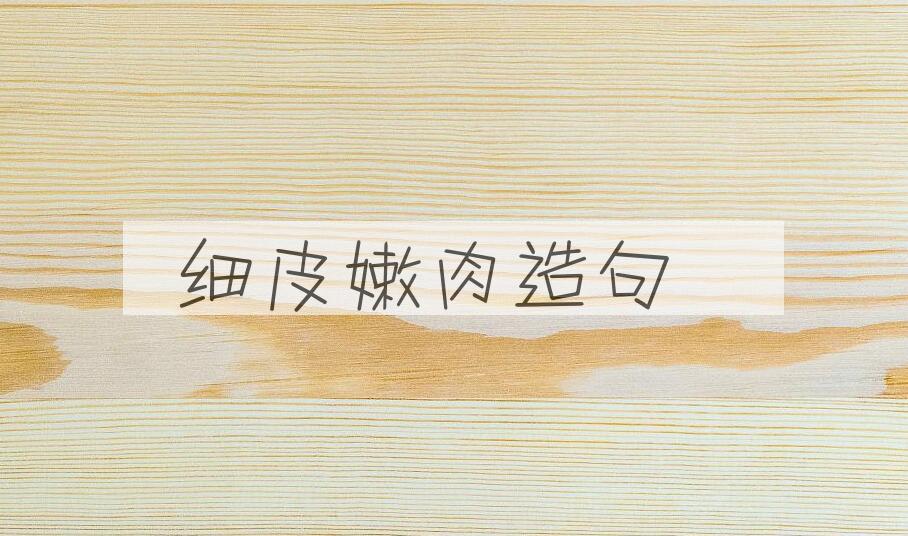 细皮嫩肉造句